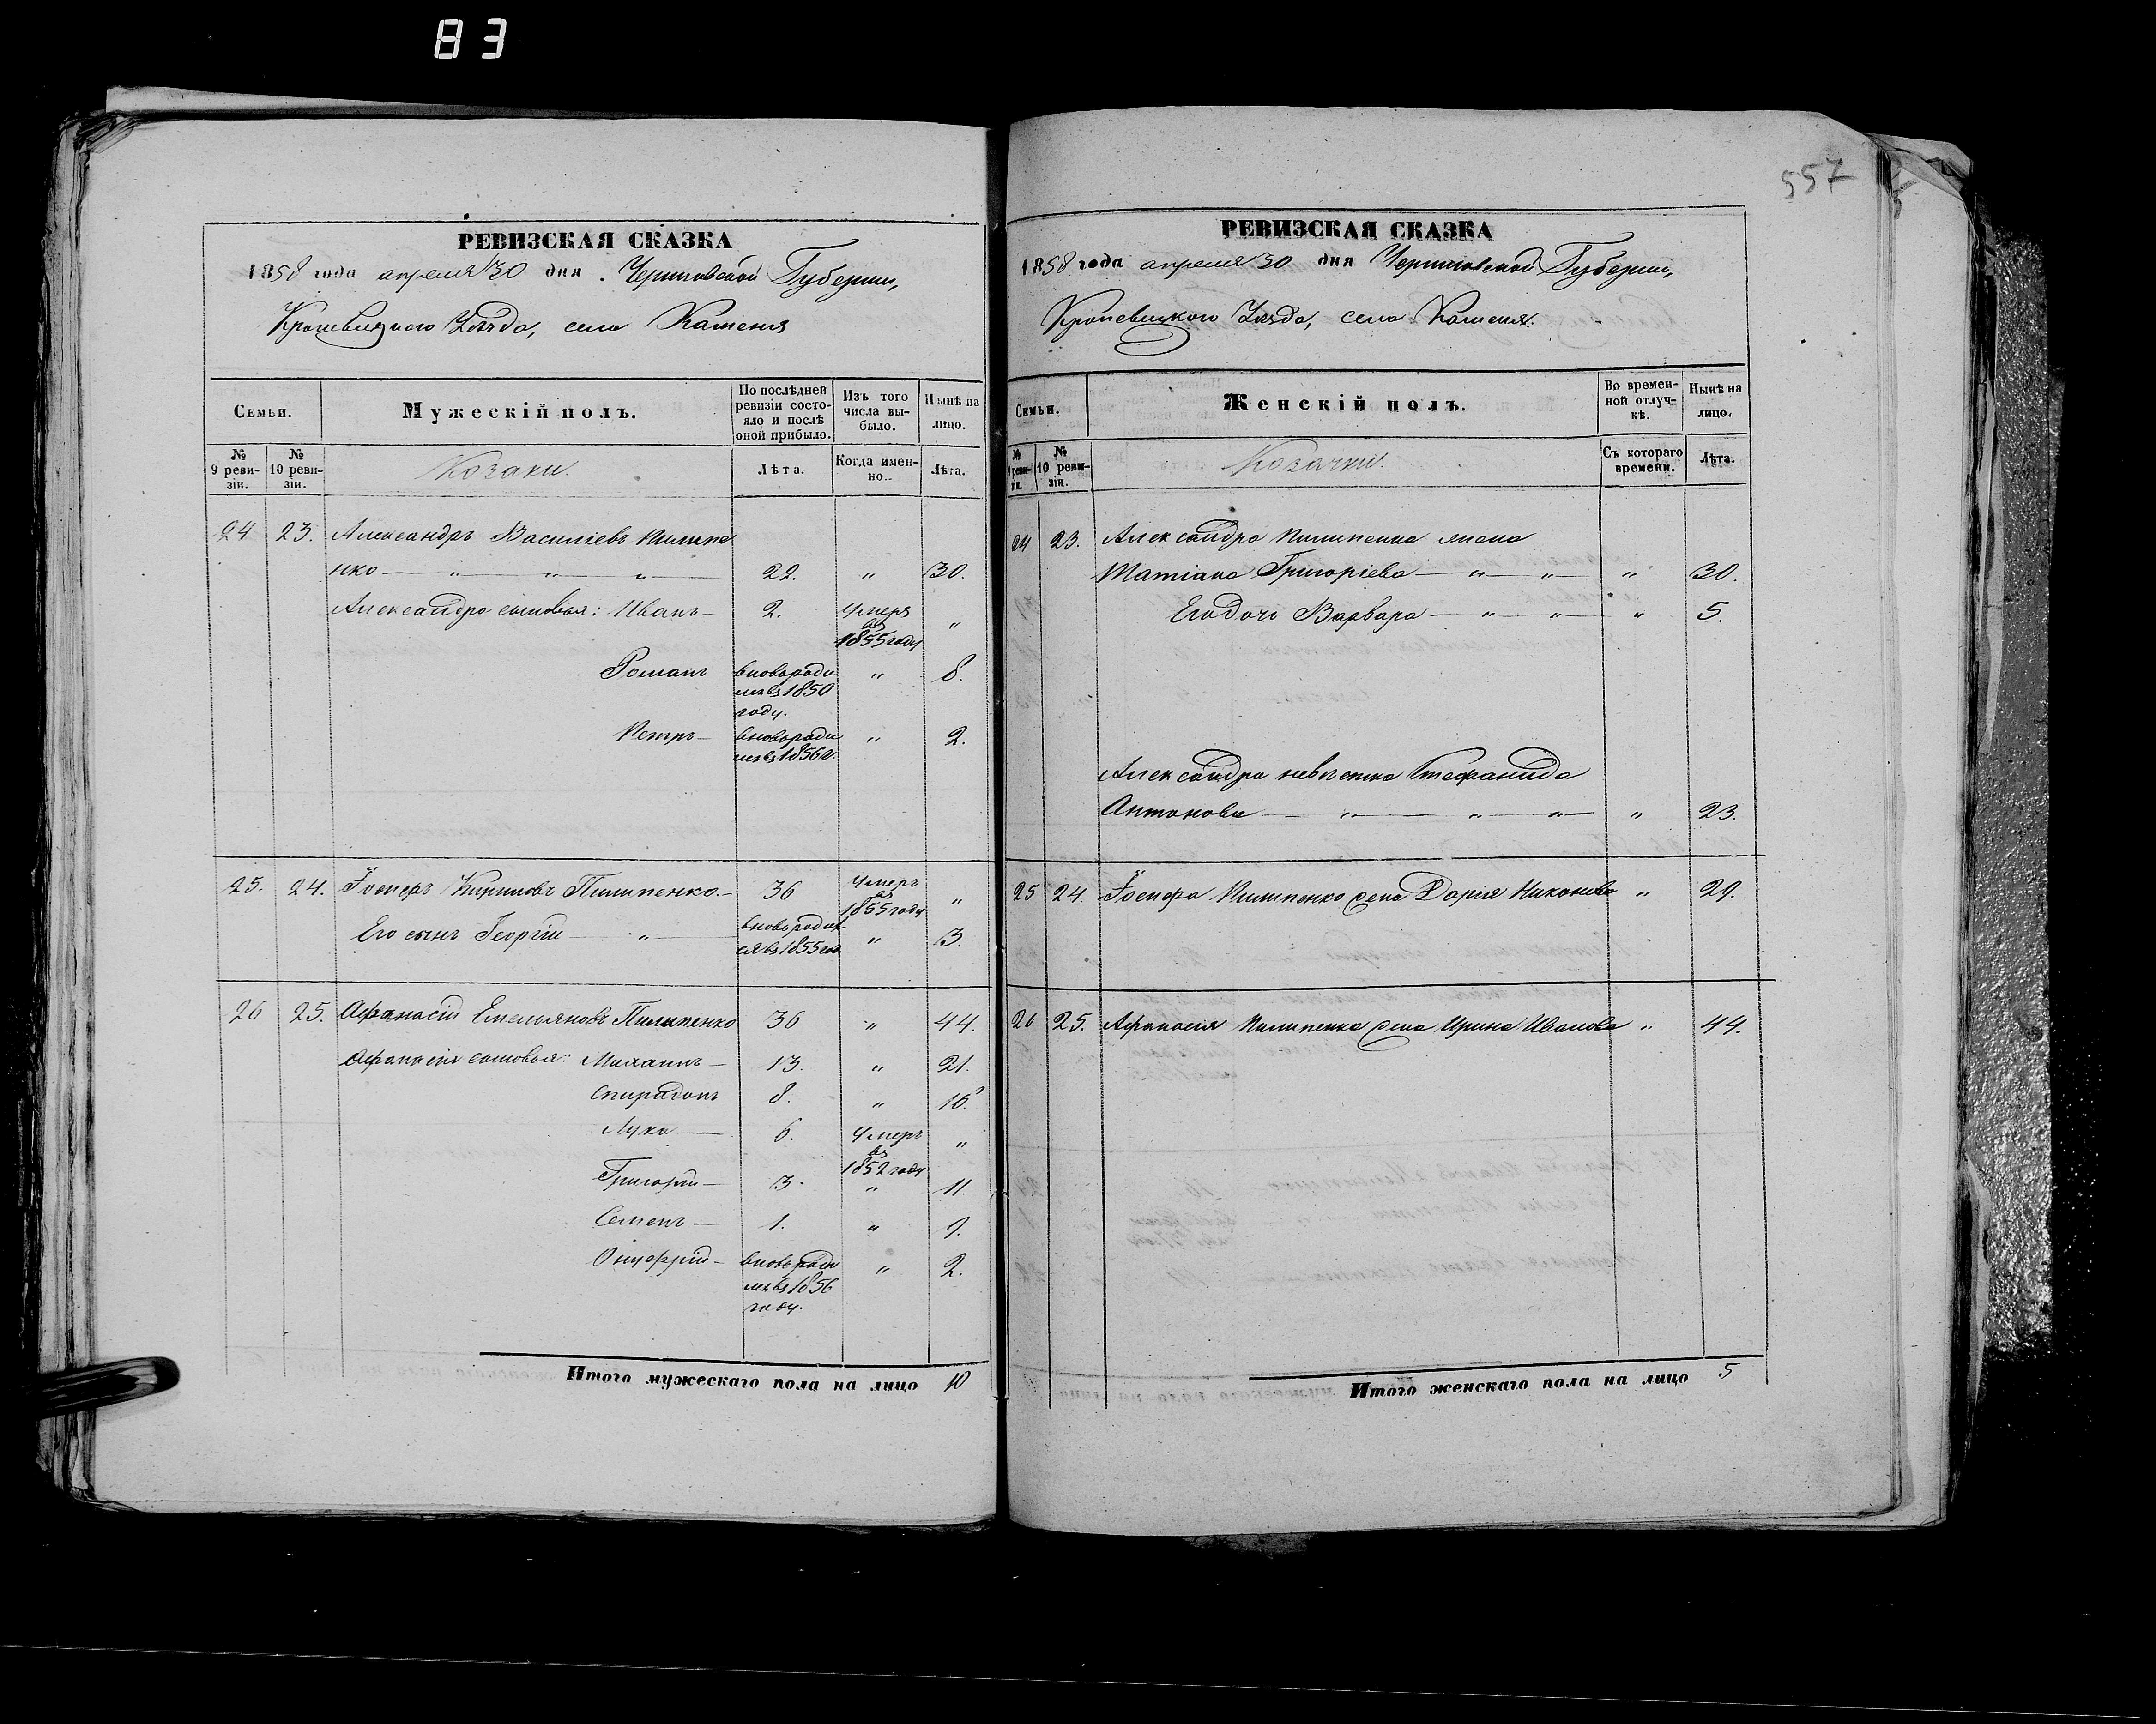 83
557
РЕВИЗСКАЯ СКАЗКА
1858 года апреля 30 дня Черниговской Губернии,
Кролевецкого Уѣзда, село Каменя
Семьи.
Мужескій полъ.
По послѣдней ревизіи состояло и послѣ оной прибыло.
Изъ того числа выбыло.
Нынѣ на лицо.
№ 9 ревизіи.
№ 10 ревизіи.
Козаки.
Лѣта.
Когда именно.
Лѣта.
24 23. Александръ Василіевъ Пилипе
нко — " — " — " — 22. " 30.
Александра сыновья: Иванъ — 2. Умеръ въ 1855 году "
Романъ вновь роди лся въ 1850 году. " 8.
Петръ — вновь роди лся въ 1856 г. " 2.
25. 24. Іосифъ Кириловъ Пилипенко. — 36 Умеръ въ 1855 году "
Его сынъ Георгій — " — вновь родил- ся въ 1855 год " 3.
26 25. Афанасій Емельяновъ Пилипенко 36 " 44.
Афанасія сыновья: Михаилъ — 13. " 21.
Спиридонъ 8. " 16.
Лука — 6. Умеръ въ 1852 году "
Григорій — 3. " 11.
Семенъ — 1. " 9.
Онуфрій — вновь роди лся въ 1856 году. " 2.
Итого мужескаго пола на лицо 10
РЕВИЗСКАЯ СКАЗКА
1858 года апреля 30 дня Черниговской Губернии,
Кролевецкого Уѣзда, села Каменя.
Семьи.
Женскій полъ.
Во временной отлучкѣ.
Нынѣ на лицо.
№ 9 ревизіи.
№ 10 ревизіи.
Козачки.
Съ котораго времени.
Лѣта.
24 23. Александра Пилипенка жена
Татіана Григоріева — " — " — " 30.
Его дочь Варвара — " — " — " 5.
Александра невѣстка Стефанида
Антонова — " — " — " — " 23.
25 24. Іосифа Пилипенко жена Дарія Никонова " 29.
26 25. Афанасія Пилипенка жена Ирина Иванова " 44.
Итого женскаго пола на лицо 5